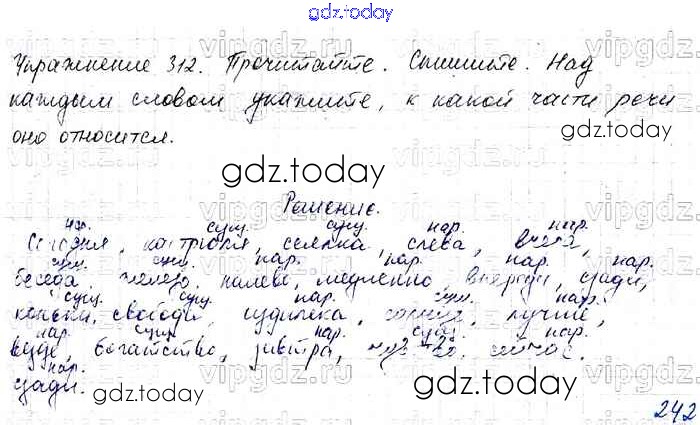 gdz.today
Упражнение 312. Прочитайте. Спишите. Над
каждым словом укажите, к какой части речи
оно относится.
gdz.today
gdz.today
Решение.
нар. сущ. сущ. нар. нар.
Сегодня, картофель, селёдка, слева, вчера,
сущ. сущ. нар. нар. нар. нар.
беседа, железо, налево, медленно, впереди, сзади,
сущ. сущ. нар. сущ. нар.
коньки, свобода, издалека, солнце, лучше,
нар. сущ. нар. сущ. нар.
богатство, завтра, сейчас.
нар.
сзади.
gdz.today
gdz.today
242